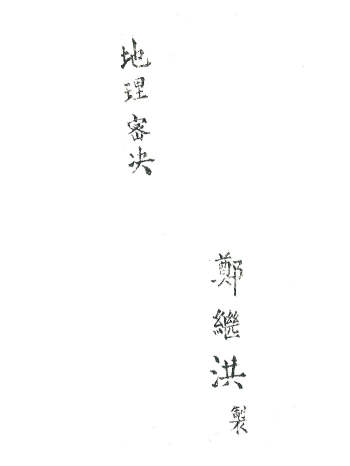 地理審决
鄭繼洪
製